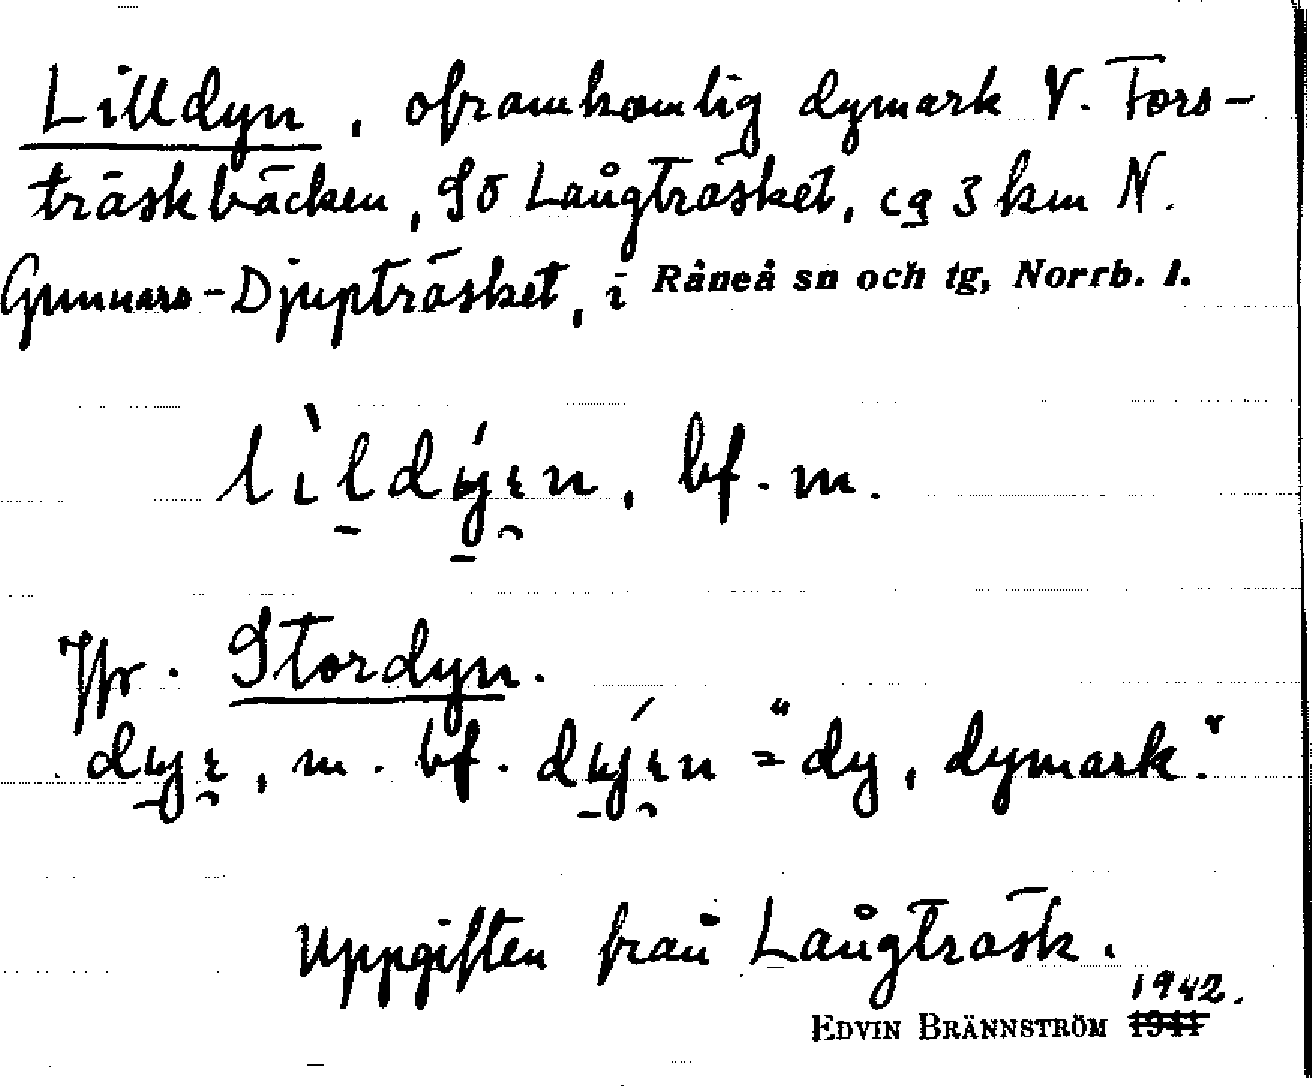 Lilldyn, oframkomlig dymark V. Fors-
träskbäcken, SO Långträsket, ca 3 km N.
Gunnars-Djupträsket, i Råneå sn och tg, Norrb. l.
bf. m.
Jfr. Stordyn.
, m. bf. = "dy, dymark."
Uppgiften från Långträsk.
1942.
EDVIN BRÄNNSTRÖM 1941